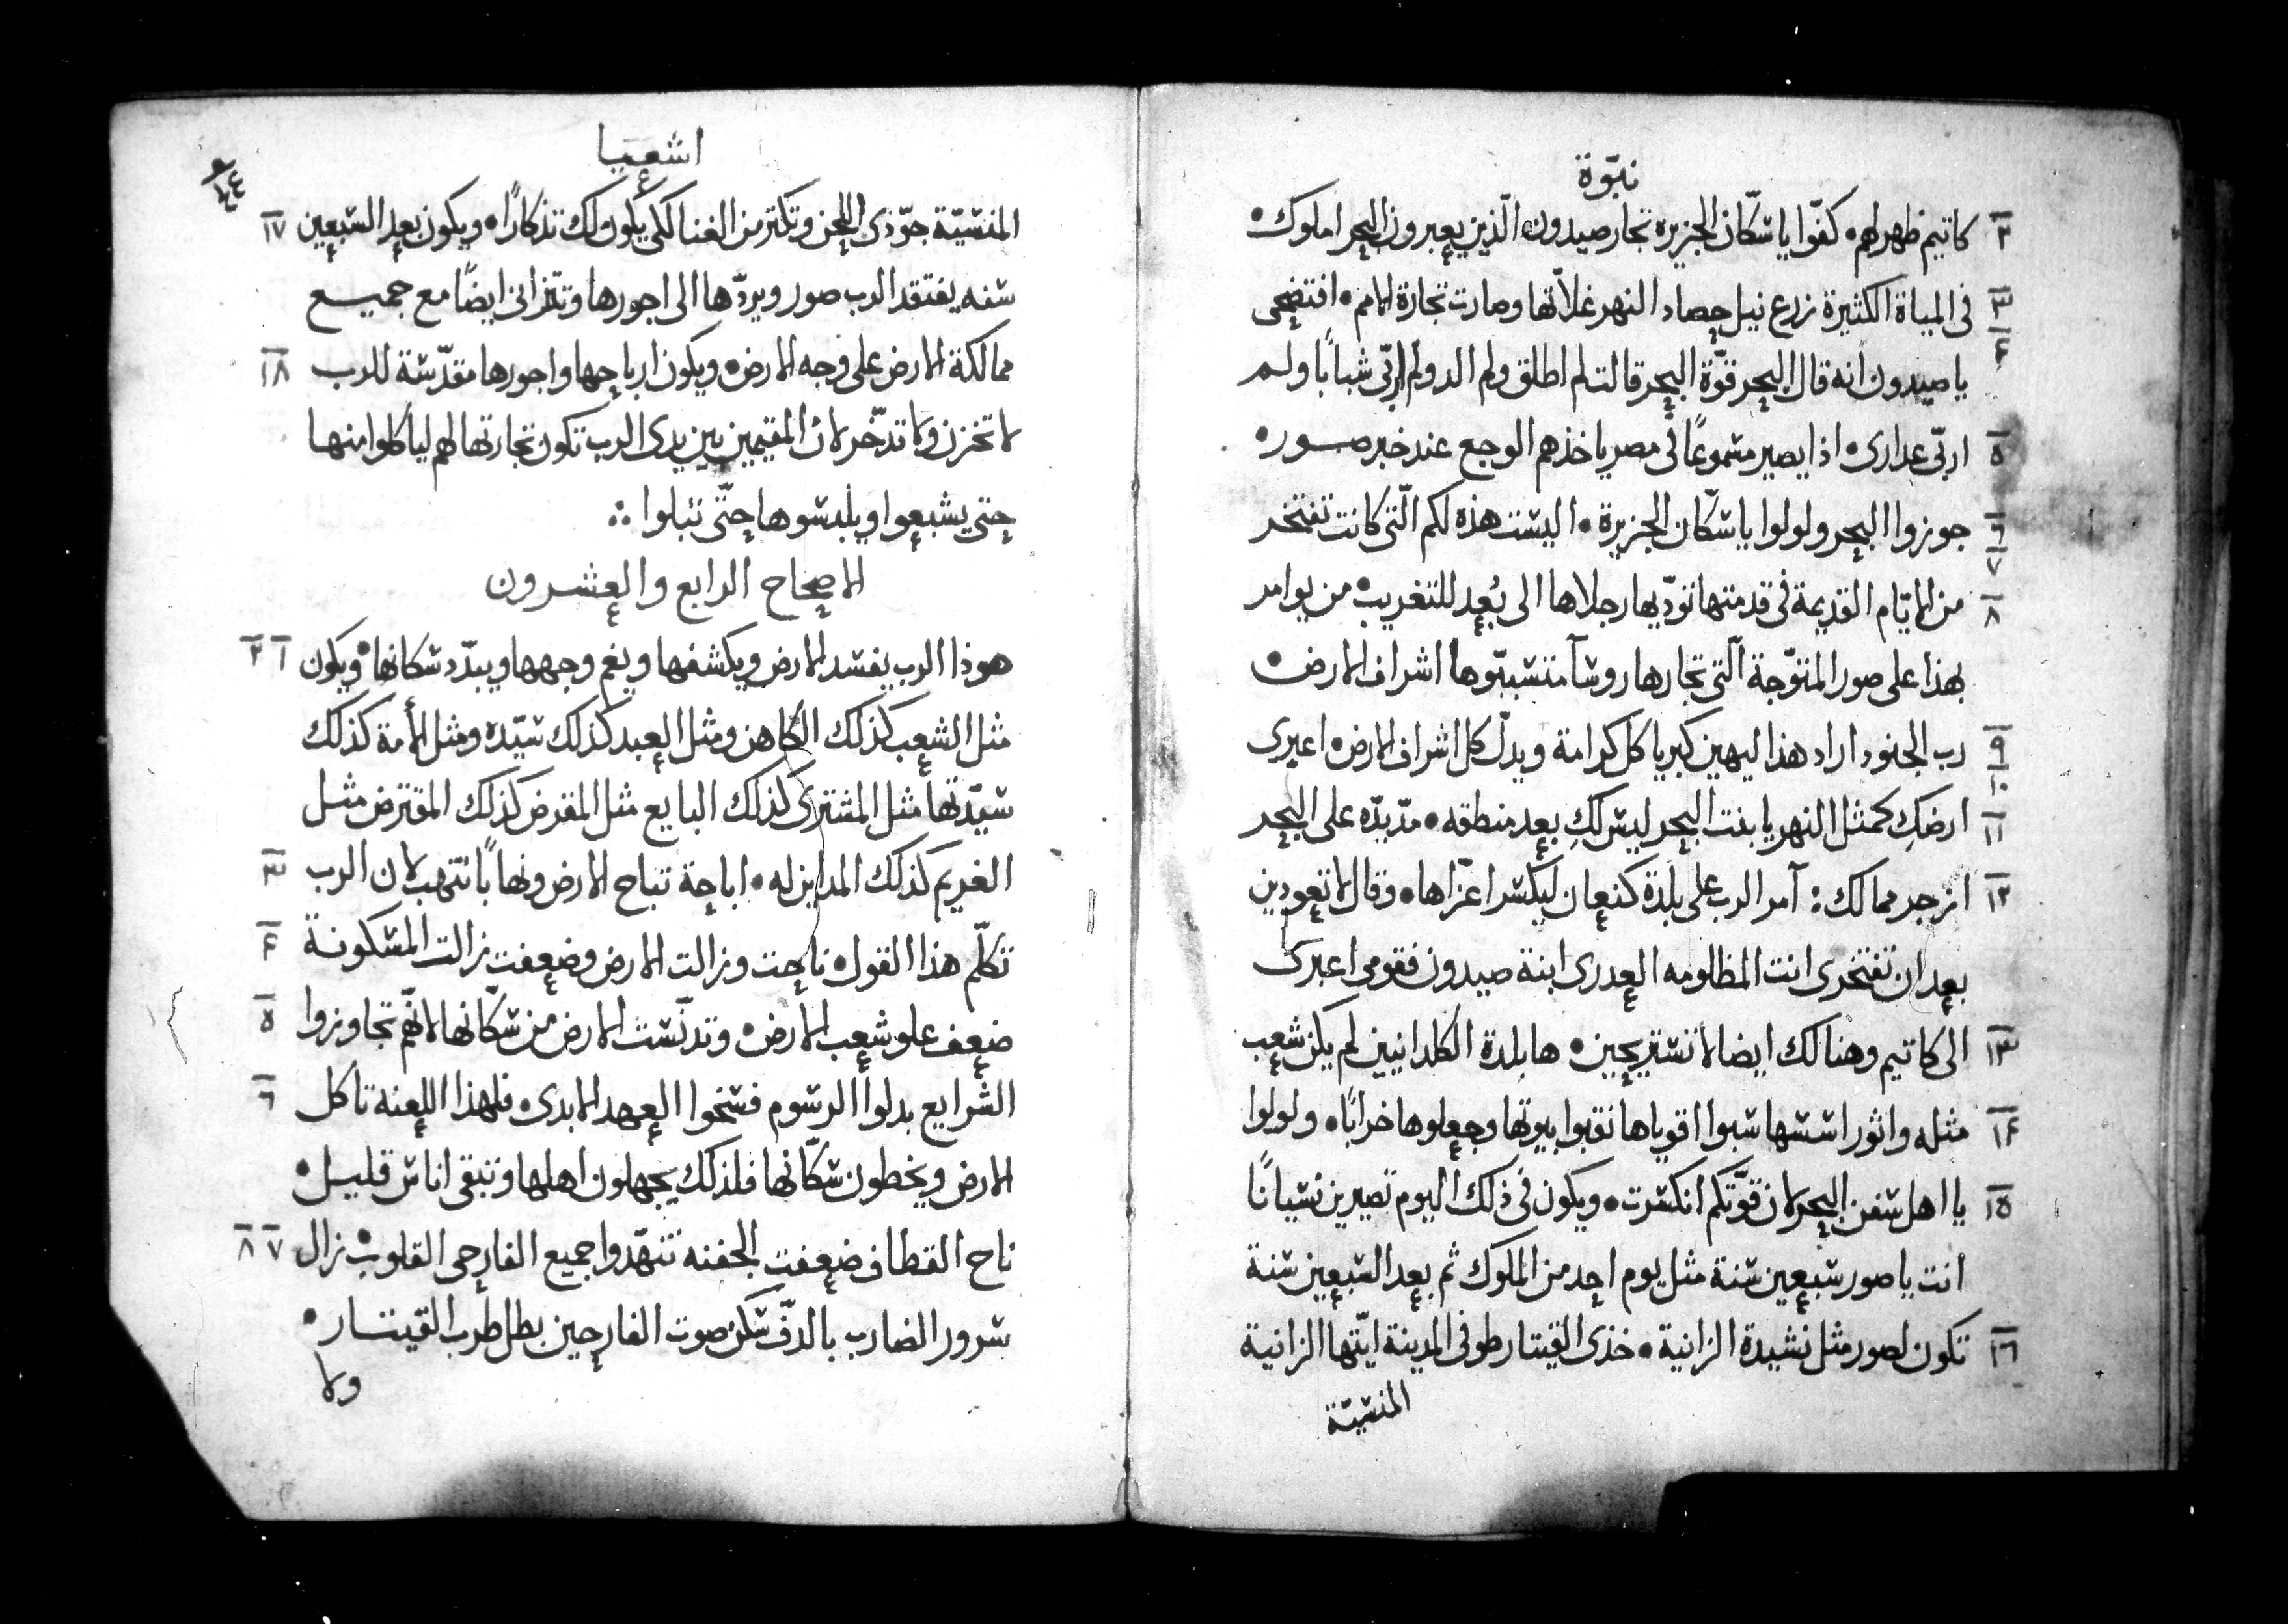 نبوّة
٢ كاتيم ظهر لهم • كفّوا يا سكّان الجزيره تجار صيدون الّذين يعبرون البحر املوك •
٣ في المياة الكثيرة زرع نيل حصاد النهر غلاّتها وصارت تجارة الامم • افتضحى
٤ يا صيدون انه قال البحر قوّة البحر قالت لم اطلق ولم الد ولم اربّى شبابًا ولم
٥ اربّى عدارى • اذا يصير مسموعًا في مصر ياخذهم الوجع عند خبر صور •
٦ ٧ جوزوا البحر ولولوا يا سكّان الجزيرة • اليست هذه لكم الّتى كانت تفتخر
٨ من الايّام القديمة في قدمتها تودّيها رجلاها الى بُعد للتغريب • من يوامر
بهذا على صور المتوّجة الّتى تجارها روسآ متسبّبوها اشراف الارض •
٩ ١٠ رب الجنود اراد هذا ليهين كبريا كل كرامة ويدلّ كل اشراف الارض • اعبرى
١١ ارضكِ كمثل النهر يا بنت البحر ليس لكِ بعد منطقه • مدّ يدّه على البحر
١٢ ازجر ممالك : آمر الرب على بلدة كنعان ليكسر اعزّاها • وقال لا تعودين
بعد ان تفتخرى انت المظلومه العدرى ابنة صيدون فقومى اعبرى
١٣ الى كاتيم وهنالك ايضا لا تستريحين • ها بلدة الكلدانيين لم يكن شعب
١٤ مثله واثور اسسها سبوا اقوياها نقبوا بيوتها وجعلوها خرابًا • ولولوا
١٥ يا اهل سفن البحر لان قوّتكم انكسرت • ويكون في ذلك اليوم تصيرين نسيانًا
انت يا صور سبعين سنة مثل يوم احد من الملوك ثم بعد السبعين سنة
١٦ تكون لصور مثل نشيدة الزانية • خذى القيتار طوفى المدينة ايّتها الزانية
المنسيّة
اشعيا
١٧ المنسيّة جوّذى اللحن وتكتر من الغنا لكى يكون لك تذكارًا • ويكون بعد السبعين
سنه يفتقد الرب صور ويردّها الى اجورها وتتزانى ايضًا مع جميع
١٨ ممالكة الارض على وجه الارض • ويكون ارباحها واجورها مقدّسة للرب
لا تخزن ولا تدخّر لان المقيمين بين يدى الرب تكون تجارتها لهم لياكلوا منها
حتى يشبعوا ويلبسوها حتّى تبلوا ∴
الاصحاح الرابع والعشرون
١ ٢ هوذا الرب يفسد الارض ويكشفها ويغم وجهها ويبدّد سكانها • ويكون
مثل الشعب كذلك الكاهن ومثل العبد كذلك سيّده ومثل الأمة كذلك
سيّدتها مثل المشترى كذلك البايع مثل المقرض كذلك المقترض مثل
٣ الغريم كذلك المداين له • اباحة تباح الارض ونهابًا تنتهب لان الرب
٤ تكلّم هذا القول • ناحت وزالت الارض وضعفت زالت المسكونة
٥ ضعف علو شعب الارض • وتدنّست الارض من سكّانها لانهّم تجاوزوا
٦ الشرايع بدلوا الرسوم فسخوا العهد الابدى • فلهذا اللعنه تاكل
الارض ويخطون سكّانها فلذلك يجهلون اهلها وتبقى اناس قليل •
٧ ٨ ناح القطاف ضعفت الجفنه تنهّدوا جميع الفارحى القلوب • زال
سرور الضارب بالدفّ سكن صوت الفارحين بطل طرب القيتار •
ولا